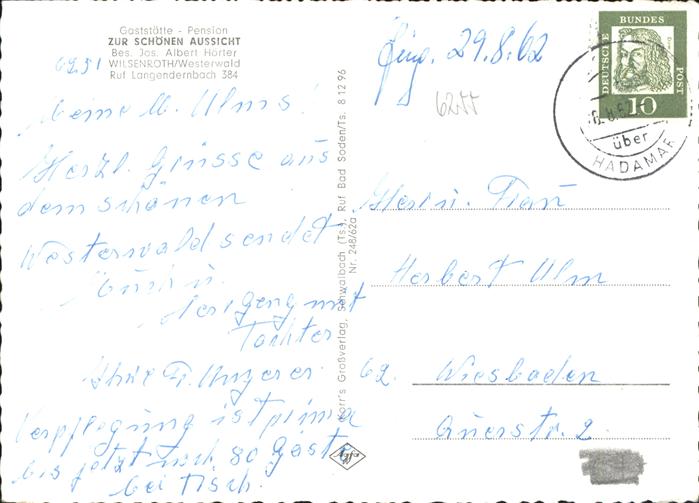 Gaststätte - Pension
ZUR SCHÖNEN AUSSICHT
Bes. Jos. Albert Hörter
WILSENROTH/Westerwald
Ruf Langendernbach 384
6251
Meine lb. Ulms!
Herzl. Grüsse aus
dem schönen
Westerwald sendet
Euch u.
mit
Tochter
Ihre Fr. Ungerer.
Verpflegung ist prima
bis jetzt noch 80 Gäste
bei Tisch.
Schwalbach (Ts.), Ruf Bad Soden/Ts. 8 12 96
Nr. 248/62a
Agfa
29.8.62
6200
DEUTSCHE BUNDESPOST
10
über
HADAMAR
Herrn u. Frau
Herbert Ulm
62. Wiesbaden
Querstr. 2.